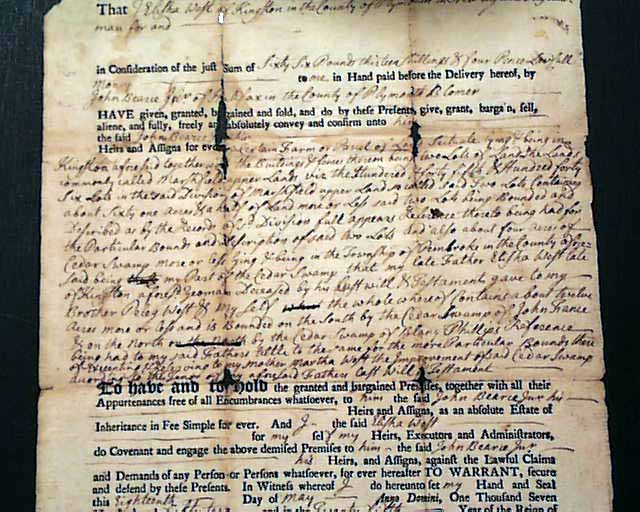 That I Elisha West of Kingston in the County of Plymouth in New England
man for and
in Consideration of the just Sum of Sixty Six Pounds thirteen Shillings & four Pence Lawfull
money to me in Hand paid before the Delivery hereof, by
John Bearce Junr of Halifax in the County of Plymouth
HAVE given, granted, bargained and sold, and do by these Presents, give, grant, bargain, sell,
aliene, and fully, freely and absolutely convey and confirm unto him
the said John Bearce
Heirs and Assigns for ever a Certain Farm or Parcel of Situate lying & being in
Kingston aforesd together the Buildings & fences thereon being two Lots of Land the Lands
commonly called Marshfield upper Lands viz the Hundred & forty fifth & Hundred forty
Six Lots in the said Division of Marshfield upper Land so called said Two Lots Containing
about Sixty one acres & a half of Land more or Less said two Lots being Bounded and
Described as by the Records of sd Division full appears Reference thereto being had for
the Particular Bounds and Description of said two Lots and also about four acres of
Cedar Swamp more or less lying & being in the Township of Pembroke in the County
said being my Part of the Cedar Swamp that my late Father Elisha West late
of Kingston aforesd Yeoman Deceased by his Last will & Testament gave to my
Brother Peleg West & my Self the whole whereof Contains about twelve
acres more or less and is Bounded on the South by the Cedar Swamp of John France
& on the North by the Cedar Swamp of Hilary Phillips Reference
being had to my said Fathers title to the same for the more Particular Bounds there
of Excepting & Reserving to my Mother Martha West the Improvement of said Cedar Swamp
according to the aforesaid Fathers Last Will & Testament
To have and to hold the granted and bargained Premises, together with all their
Appurtenances free of all Encumbrances whatsoever, to him the said John Bearce Junr his
Heirs and Assigns, as an absolute Estate of
Inheritance in Fee Simple for ever. And I the said Elisha West
for my self my Heirs, Executors and Administrators,
do Covenant and engage the above demised Premises to him the said John Bearce Junr
his Heirs, and Assigns, against the Lawful Claims
and Demands of any Person or Persons whatsoever, for ever hereafter TO WARRANT, secure
and defend by these Presents. In Witness whereof I do hereunto set my Hand and Seal
this Eighteenth Day of May Anno Domini, One Thousand Seven
and in the Twenty Year of the Reign of